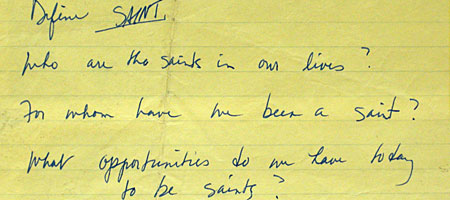 Define SAINT.
Who are the saints in our lives?
For whom have we been a saint?
What opportunities do we have today
to be saints?